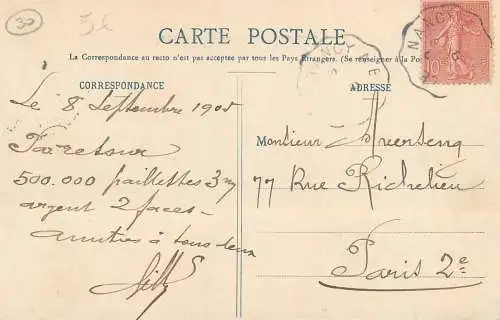 30
5e
CARTE POSTALE
La Correspondance au recto n'est pas acceptée par tous les Pays Etrangers. (Se renseigner à la Pos
CORRESPONDANCE
ADRESSE
NANCY
NANCY
10
Le 8 Septembre 1905
Par retour
500.000 paillettes 3m
argent 2 faces
amitiés à tous deux
Monsieur
77 Rue Richelieu
Paris 2e